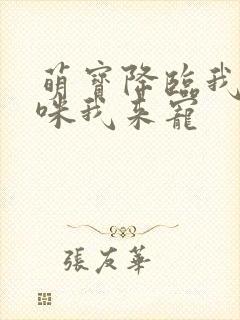 萌寶降臨我
咪我來寵
張友華